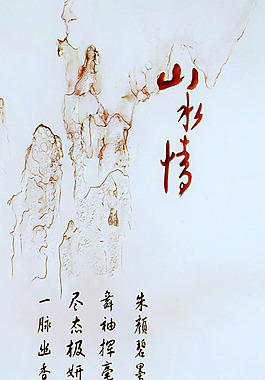 山水情
朱颜碧墨
舞袖挥毫
尽态极妍
一脉幽香